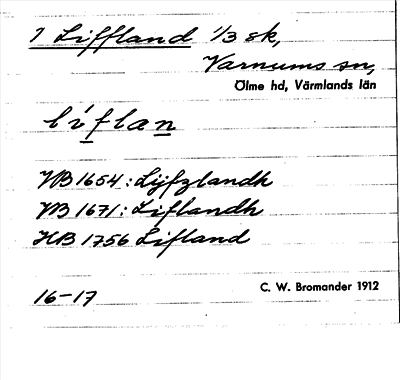 1 Liffland 1/3 sk,
Varnums sn,
Ölme hd, Värmlands län
líflan
JB 1654: Lijfzlandh
JB 1671: Liflandh
HB 1756 Lifland
16-17
C. W. Bromander 1912